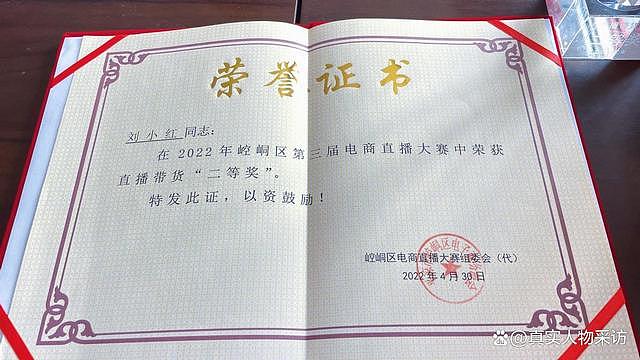 荣誉证书
刘小红同志：
在2022年崆峒区第三届电商直播大赛中荣获
直播带货“二等奖”。
特发此证，以资鼓励！
崆峒区电商直播大赛组委会（代）
2022年4月30日
@真实人物采访